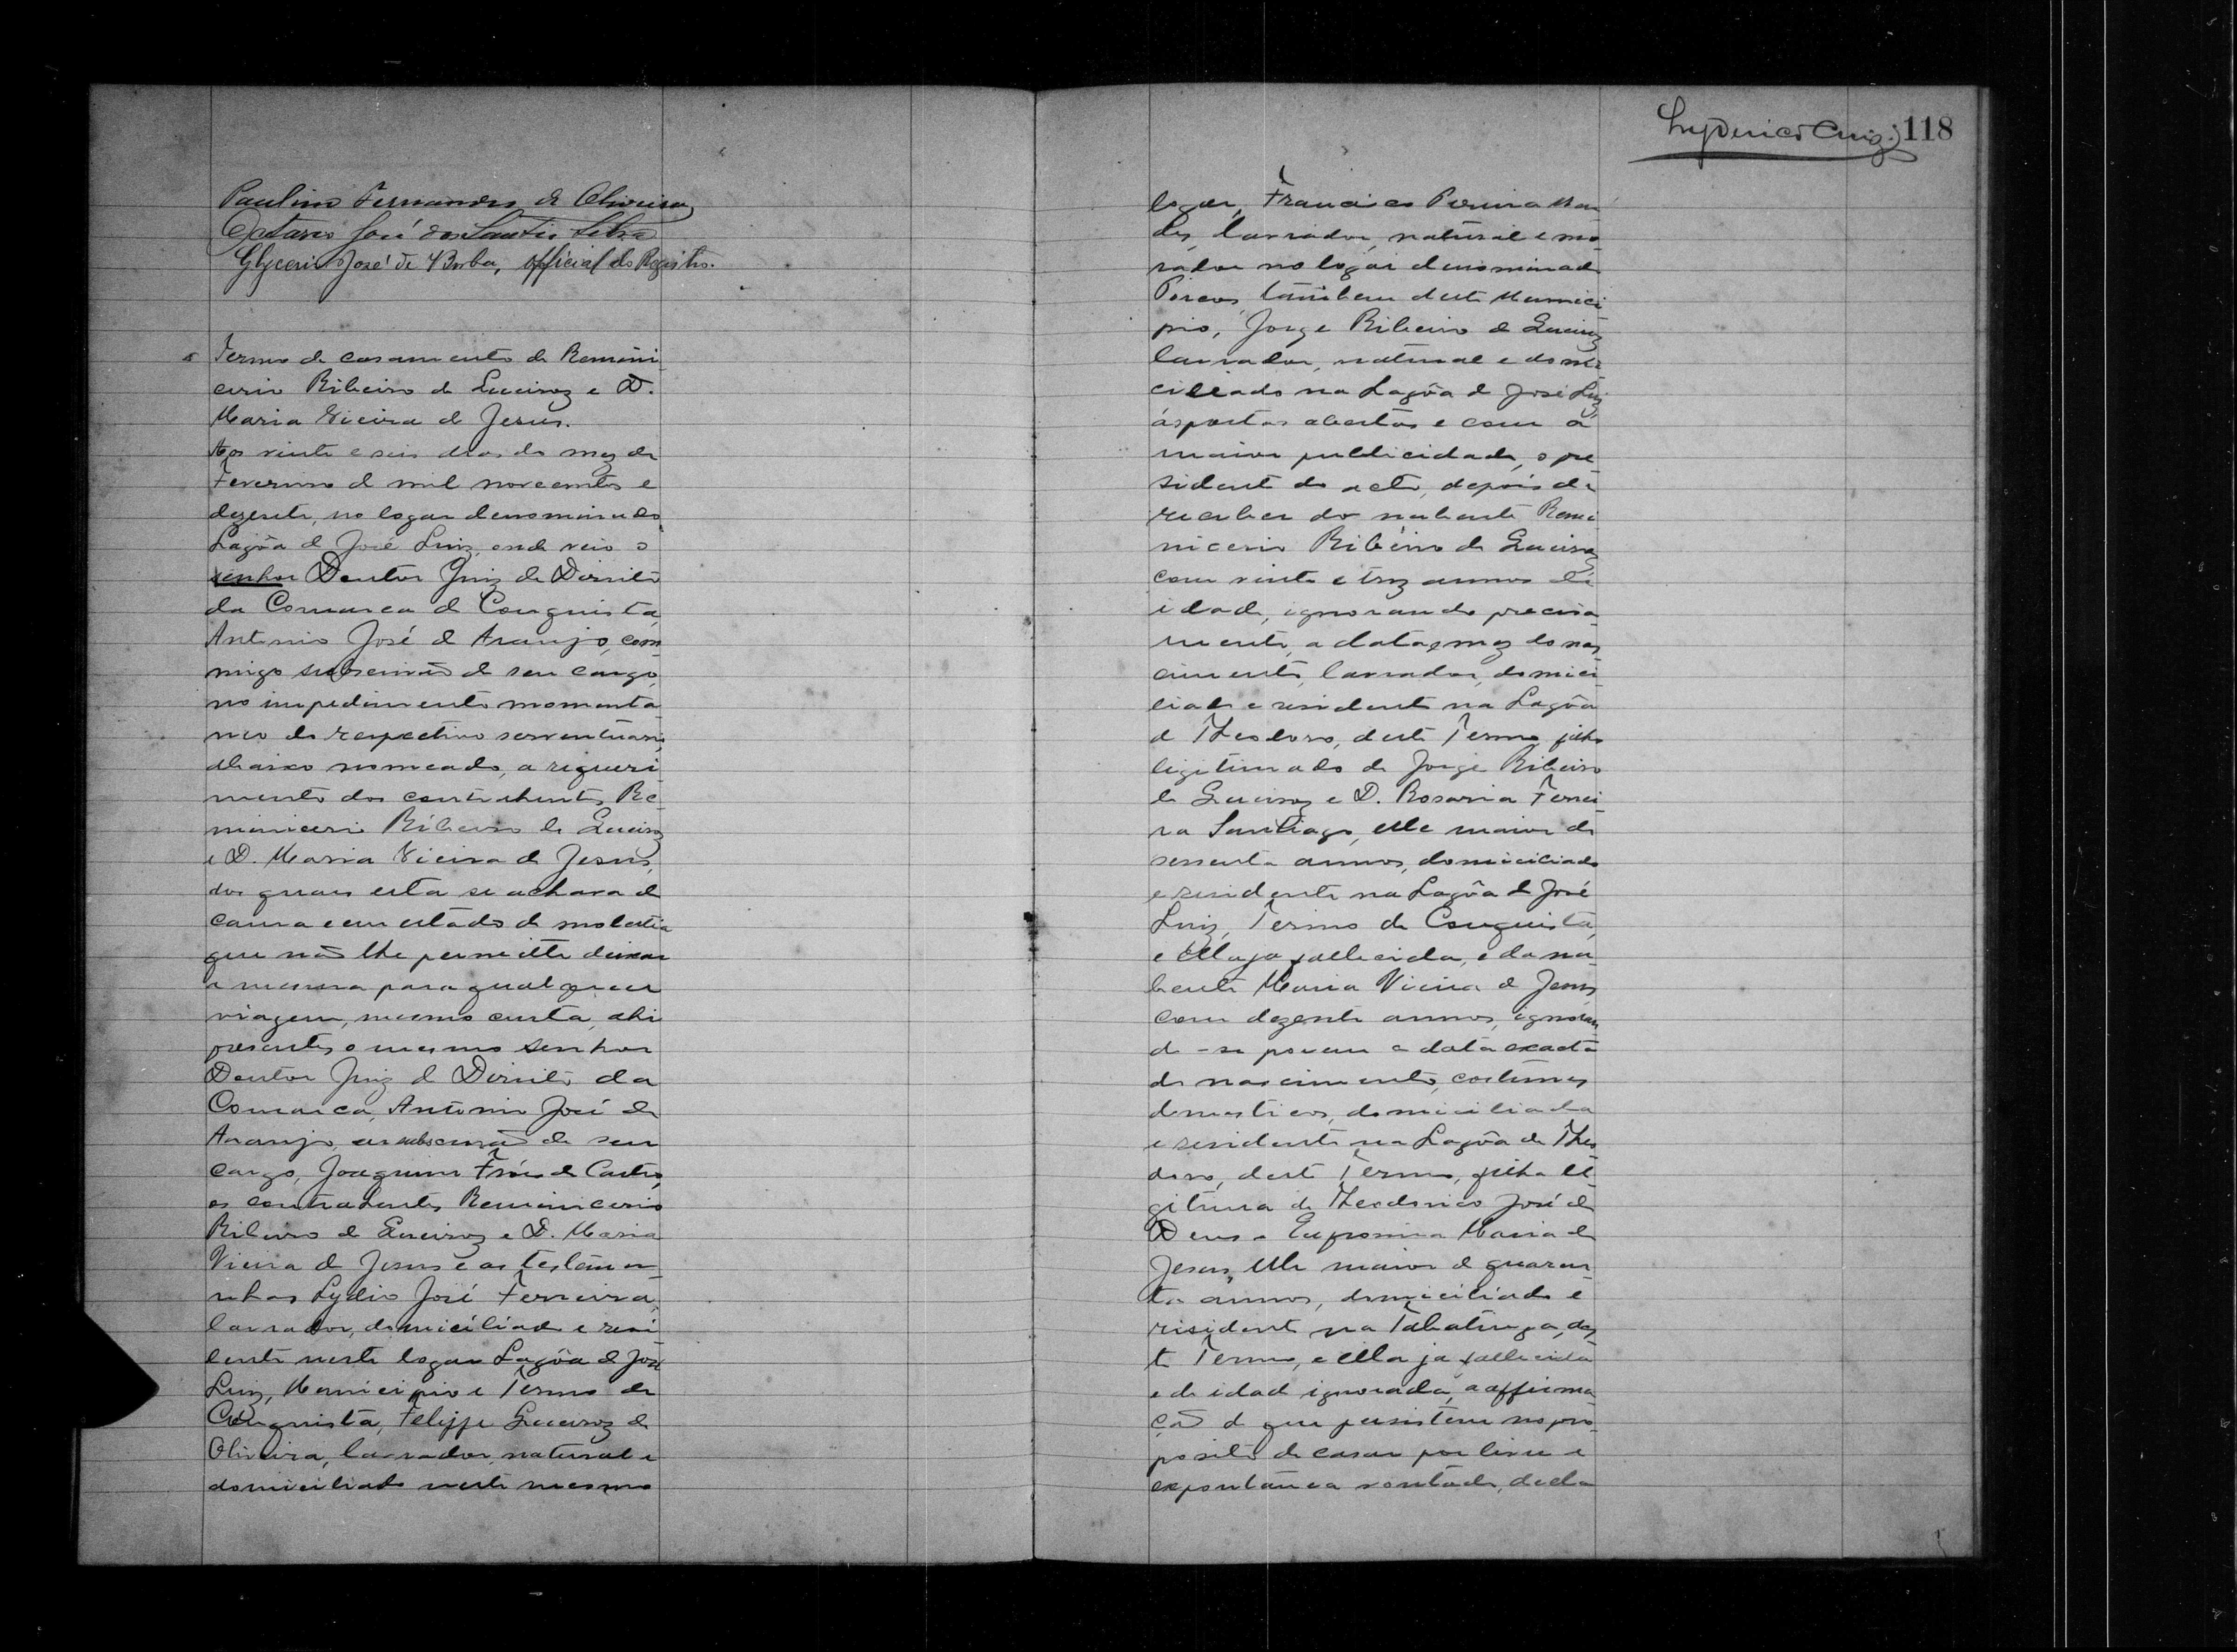 Paulino Fernandes de Oliveira
Octavio José dos Santos Silva
Glycerio José de Borba, official do Registro.
Termo de casamento de Remini
cerio Ribeiro de Queiroz e D.
Maria Vieira de Jesus.
Aos vinte e seis dias do mez de
Fevereiro de mil novecentos e
dezesete, no logar denominado
Lagôa de José Luiz, onde veio o
senhor Doutor Juiz de Direito
da Comarca de Conquista,
Antonio José de Araujo, com
migo subescrivão de seu cargo,
no impedimento momenta
neo do respectivo serventuario,
abaixo nomeado, a requeri
mento dos contrahentes, Re-
minicerio Ribeiro de Queiroz
e D. Maria Vieira de Jesus,
dos quaes esta se achava de
cama e em estado de molestia
que não lhe permitte deixar
a mesma para qualquer
viagem, mesmo curta, ahi
presentes o mesmo senhor
Doutor Juiz de Direito da
Comarca, Antonio José de
Araujo, eu subescrivão de seu
cargo, Joaquim Fróes de Castro,
os contrahentes Reminicerio
Ribeiro de Queiroz e D. Maria
Vieira de Jesus e as testemu-
nhas Lydio José Ferreira,
lavrador, domiciliado e resi
dente neste logar Lagôa de José
Luiz, Municipio e Termo de
Conquista, Felippe Queiroz de
Oliveira, lavrador, natural e
domiciliado neste mesmo
118
logar, Francisco Pereira Men
des, lavrador, natural e mo
rador no logar denominado
tambem deste Munici
pio, Jorge Ribeiro de Queiroz
lavrador, natural e domi
ciliado na Lagôa de José Luiz,
ás portas abertas e com a
maior publicidade, o pre
sidente do acto, depois de
receber do nubente Remi
nicerio Ribeiro de Queiroz
com vinte e trez annos de
idade, ignorando precisa
mente, a data e mez do nas
cimento, lavrador, domici
liado e residente na Lagôa
de Theodoro, deste Termo, filho
ligitimado de Jorge Ribeiro
de Queiroz e D. Rosaria Ferrei
ra Santiago, elle maior de
sessenta annos, domiciliado
e residente na Lagôa de José
Luiz, Termo de Conquista,
e ella ja fallecida, e da nu-
bente Maria Vieira de Jesus,
com dezesete annos, ignoran
do-se porem a data exacta
do nascimento, costumes
domesticos, domiciliada
e residente na Lagôa de Theo
doro, deste Termo, filha le
gitima de Theodorico José de
Deus e Eufrosina Maria de
Jesus, elle maior de quaren-
ta annos, domiciliado e
risidente na Tabatinga, des
te Termo, e ella ja fallecida
e de idade ignorada, a affirma
ção de que persistem no pro
posito de casar por livre e
expontanea vontade, decla